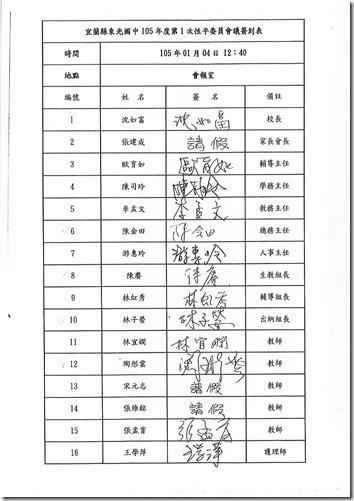 宜蘭縣東光國中105年度第1次性平委員會議簽到表
時間 105年01月04日 12:40
地點 會報室
編號 姓名 簽名 備註
1 沈如富 沈如富 校長
2 張建成 請假 家長會長
3 歐育如 歐育如 輔導主任
4 陳司玲 學務主任
5 李孟文 李孟文 教務主任
6 陳金田 陳金田 總務主任
7 游惠玲 游惠玲 人事主任
8 陳賡 陳賡 生教組長
9 林虹秀 林虹秀 輔導組長
10 林子譽 出納組長
11 林宜嫻 林宜嫻 教師
12 陶彤雲 教師
13 宋元志 請假 教師
14 張維銘 請假 教師
15 張孟育 張孟育 教師
16 王學萍 護理師